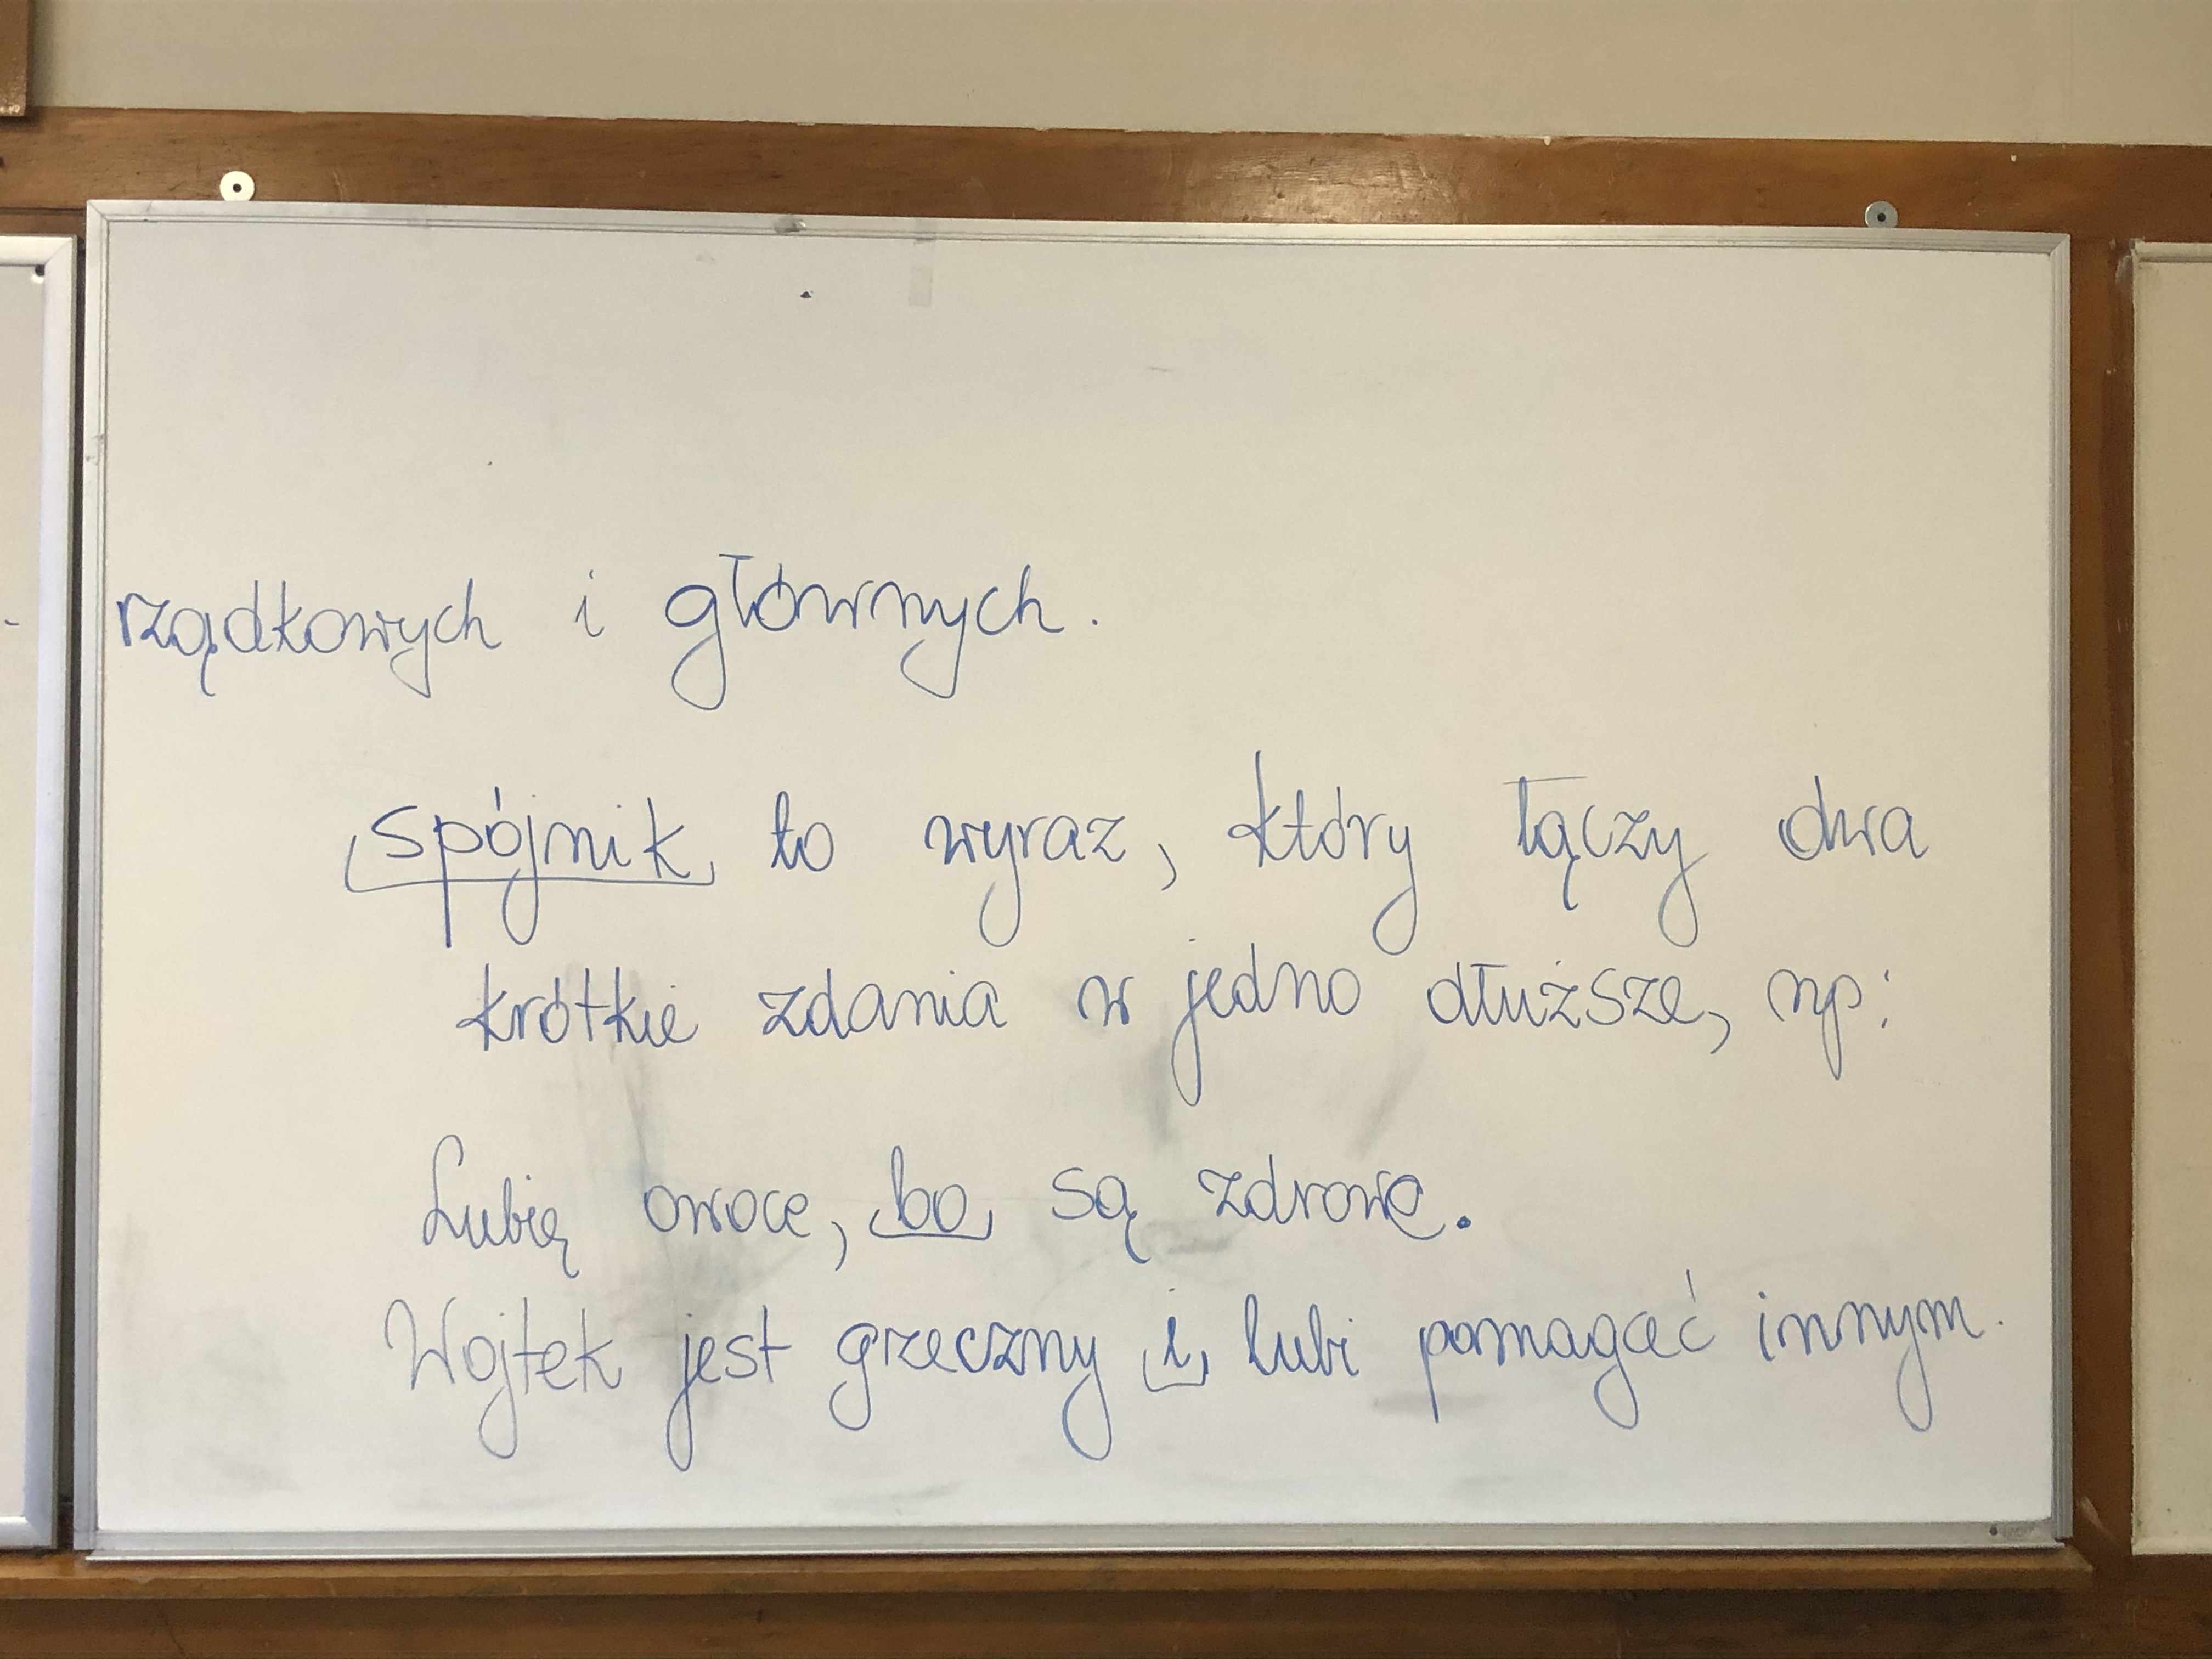 rządkowych i głównych.
spójnik to wyraz, który łączy dwa
krótkie zdania w jedno dłuższe, np:
Lubię owoce, bo są zdrowe.
Wojtek jest grzeczny i lubi pomagać innym.